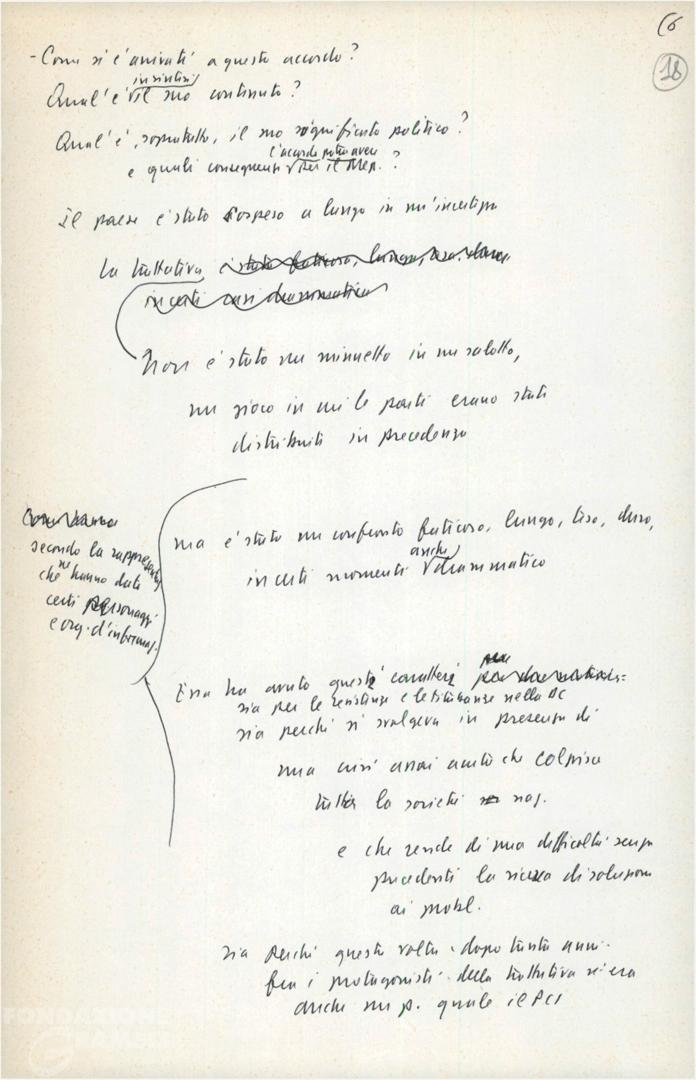 (6
18
- Come si è arrivati a questo accordo?
in sintesi
Qual'è il suo contenuto?
Qual'è, sopratutto, il suo significato politico?
l'accordo potrà avere
e quali conseguenze per il Mep.?
Il paese è stato sospeso a lungo in un'incertezza
La trattativa è stata faticosa, lunga, tesa, dura,
in certi casi drammatica
Non è stato un minuetto in un salotto,
un gioco in cui le parti erano state
distribuite in precedenza
secondo la rappresentaz.
che ne hanno dato
certi personaggi
e org. d'informaz.
ma è stato un confronto faticoso, lungo, teso, duro,
anche
in certi momenti drammatico
Essa ha avuto questi caratteri
sia per le resistenze e le titubanze nella DC
sia perché si svolgeva in presenza di
una crisi assai acuta che colpisce
tutta la società naz.
e che rende di una difficoltà senza
precedenti la ricerca di soluzioni
ai probl.
sia perché questa volta - dopo tanti anni -
fra i protagonisti della trattativa vi era
anche un p. quale il PCI
FONDAZIONE
GRAMSCI